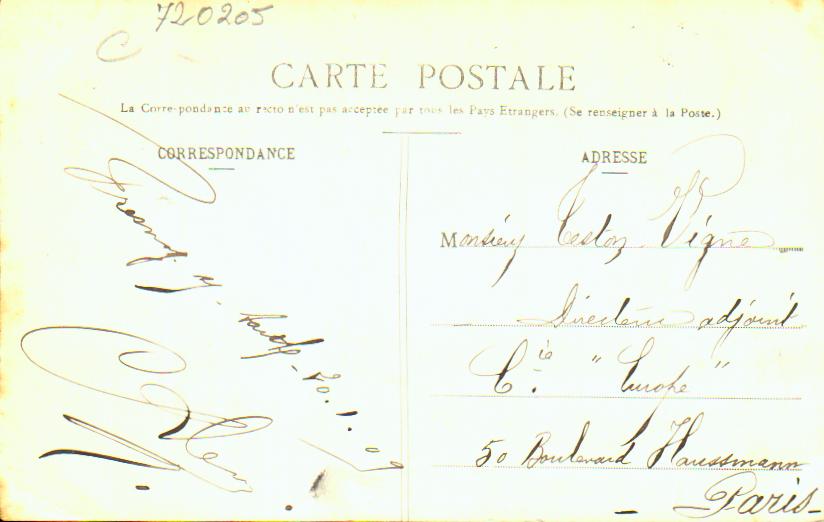 720205
C
CARTE POSTALE
La Correspondance au recto n'est pas acceptée par tous les Pays Etrangers. (Se renseigner à la Poste.)
CORRESPONDANCE
20.1.09
ADRESSE
Monsieur Teston Vigne
Directeur adjoint
Cie. "Europe"
50 Boulevard Haussmann
Paris